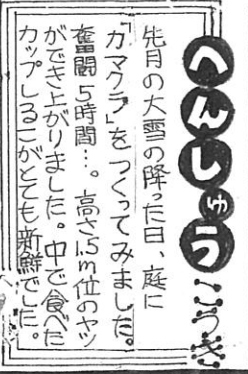 へんしゅうこうき
先月の大雪の降った日、庭に
「カマクラ」をつくってみました。
奮闘5時間…。高さ1.5m位のヤツ
ができ上がりました。中で食べた
カップしるこがとても新鮮でした。